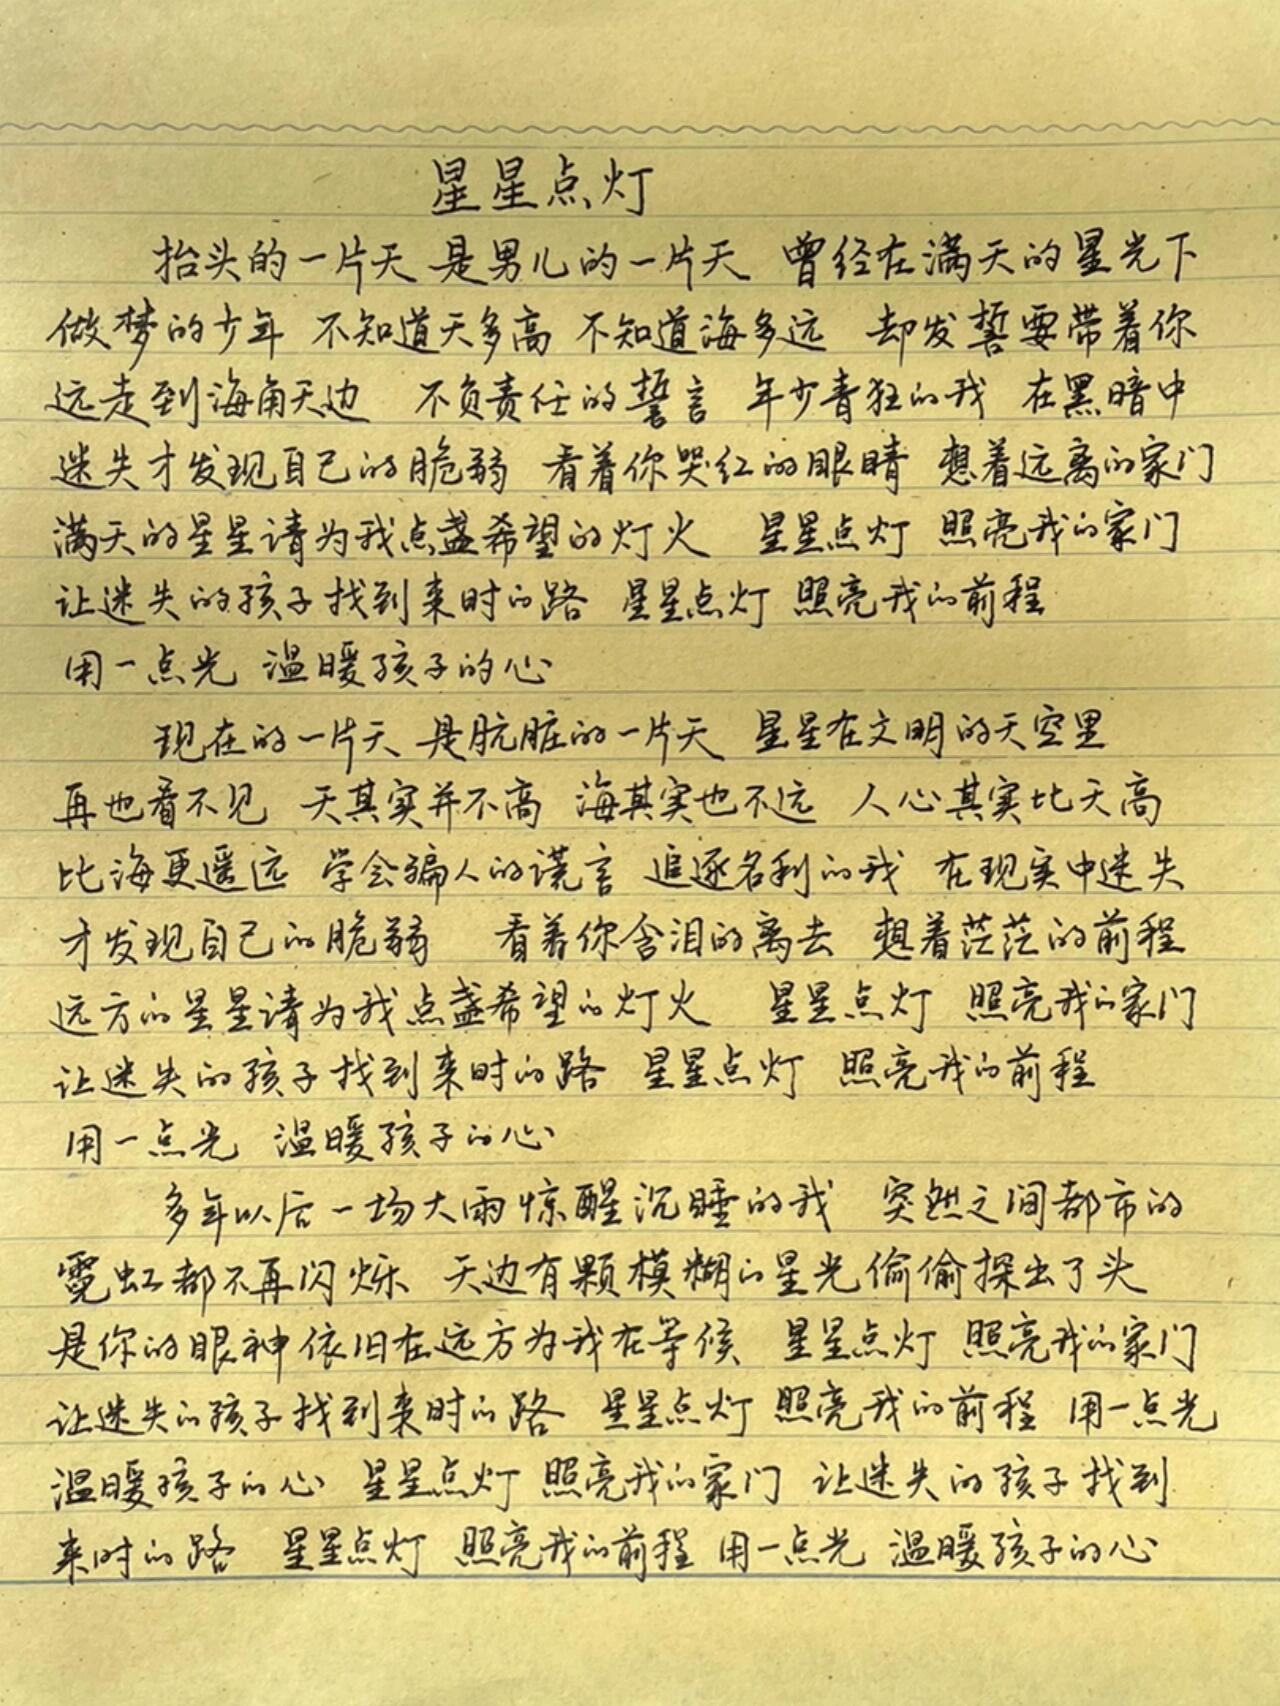 星星点灯
抬头的一片天 是男儿的一片天 曾经在满天的星光下
做梦的少年 不知道天多高 不知道海多远 却发誓要带着你
远走到海角天边 不负责任的誓言 年少青狂的我 在黑暗中
迷失才发现自己的脆弱 看着你哭红的眼睛 想着远离的家门
满天的星星请为我点盏希望的灯火 星星点灯 照亮我的家门
让迷失的孩子找到来时的路 星星点灯 照亮我的前程
用一点光 温暖孩子的心
现在的一片天 是肮脏的一片天 星星在文明的天空里
再也看不见 天其实并不高 海其实也不远 人心其实比天高
比海更遥远 学会骗人的谎言 追逐名利的我 在现实中迷失
才发现自己的脆弱 看着你含泪的离去 想着茫茫的前程
远方的星星请为我点盏希望的灯火 星星点灯 照亮我的家门
让迷失的孩子找到来时的路 星星点灯 照亮我的前程
用一点光 温暖孩子的心
多年以后一场大雨惊醒沉睡的我 突然之间都市的
霓虹都不再闪烁 天边有颗模糊的星光偷偷探出了头
是你的眼神依旧在远方为我在等候 星星点灯 照亮我的家门
让迷失的孩子找到来时的路 星星点灯 照亮我的前程 用一点光
温暖孩子的心 星星点灯 照亮我的家门 让迷失的孩子找到
来时的路 星星点灯 照亮我的前程 用一点光 温暖孩子的心